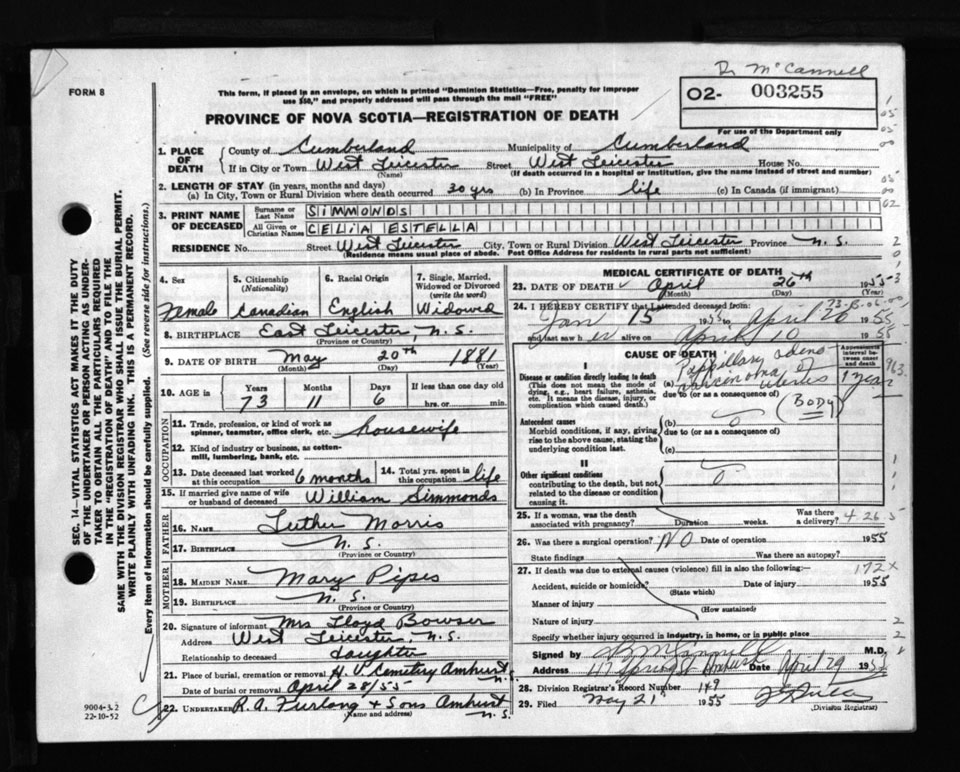 Dr McCannell
FORM 8
This form, if placed in an envelope, on which is printed "Dominion Statistics—Free, penalty for improper
use $50," and properly addressed will pass through the mail "FREE"
O2- 003255
PROVINCE OF NOVA SCOTIA—REGISTRATION OF DEATH
For use of the Department only
1. PLACE OF DEATH
County of Cumberland Municipality of Cumberland
If in City or Town West Leicester Street West Leicester House No.
(Name) (If death occurred in a hospital or institution, give the name instead of street and number)
2. LENGTH OF STAY (in years, months and days)
(a) In City, Town or Rural Division where death occurred 30 yrs (b) In Province life (c) In Canada (if immigrant)
3. PRINT NAME OF DECEASED
Surname or Last Name SIMMONDS
All Given or Christian Names CELIA ESTELLA
RESIDENCE No. Street West Leicester City, Town or Rural Division West Leicester Province N.S.
(Residence means usual place of abode. Post Office Address for residents in rural parts not sufficient)
4. Sex
Female
5. Citizenship
(Nationality)
Canadian
6. Racial Origin
English
7. Single, Married,
Widowed or Divorced
(write the word)
Widowed
8. BIRTHPLACE East Leicester, N.S.
(Province or Country)
9. DATE OF BIRTH May 20th 1881
(Month) (Day) (Year)
10. AGE in Years Months Days If less than one day old
73 11 6 hrs. or min.
OCCUPATION
11. Trade, profession, or kind of work as
spinner, teamster, office clerk, etc. housewife
12. Kind of industry or business, as cotton-
mill, lumbering, bank, etc.
13. Date deceased last worked
at this occupation 6 months
14. Total yrs. spent in
this occupation life
15. If married give name of wife
or husband of deceased William Simmonds
FATHER
16. NAME Luther Morris
17. BIRTHPLACE N.S.
(Province or Country)
MOTHER
18. MAIDEN NAME Mary Pipes
19. BIRTHPLACE N.S.
(Province or Country)
20. Signature of informant Mrs Lloyd Bowser
Address West Leicester, N.S.
Relationship to deceased daughter
21. Place of burial, cremation or removal H. V. Cemetery Amherst N.S.
Date of burial or removal April 28/55
22. UNDERTAKER R.A. Furlong & Sons Amherst N.S.
(Name and address)
MEDICAL CERTIFICATE OF DEATH
23. DATE OF DEATH April 26th 1955
(Month) (Day)
24. I HEREBY CERTIFY that I attended deceased from:
Jan 15 1955 to April 26 1955
and last saw her alive on April 10 1955
CAUSE OF DEATH
Approximate interval between onset and death
I
Disease or condition directly leading to death
(This does not mean the mode of
dying, e.g., heart failure, asthenia,
etc. It means the disease, injury, or
complication which caused death.)
(a) Pappillary adeno
carcinoma of
uterus
1 year
due to (or as a consequence of)
(BODY)
Antecedent causes
Morbid conditions, if any, giving
rise to the above cause, stating the
underlying condition last.
(b) 0
due to (or as a consequence of)
(c)
II
Other significant conditions
contributing to the death, but not
related to the disease or condition
causing it.
0
25. If a woman, was the death
associated with pregnancy? Duration weeks. Was there a delivery?
4 26 5
26. Was there surgical operation? NO Date of operation 1955
State findings Was there an autopsy?
27. If death was due to external causes (violence) fill in also the following:—
172x
Accident, suicide or homicide? Date of injury 1955
(State which)
Manner of injury
(How sustained)
Nature of injury
Specify whether injury occurred in industry, in home, or in public place
Signed by M.D.
Address 117 Spring St Amherst Date April 29 1955
28. Division Registrar's Record Number 149
29. Filed May 21 1955
(Division Registrar)
SEC. 14—VITAL STATISTICS ACT MAKES IT THE DUTY
OF THE UNDERTAKER OR PERSON ACTING AS UNDER-
TAKER TO OBTAIN ALL THE PARTICULARS REQUIRED
IN THE "REGISTRATION OF DEATH" AND TO FILE THE
SAME WITH THE DIVISION REGISTRAR WHO SHALL ISSUE THE BURIAL PERMIT.
WRITE PLAINLY WITH UNFADING INK. THIS IS A PERMANENT RECORD.
Every item of information should be carefully supplied. (See reverse side for instructions.)
9004-3.2
22-10-52